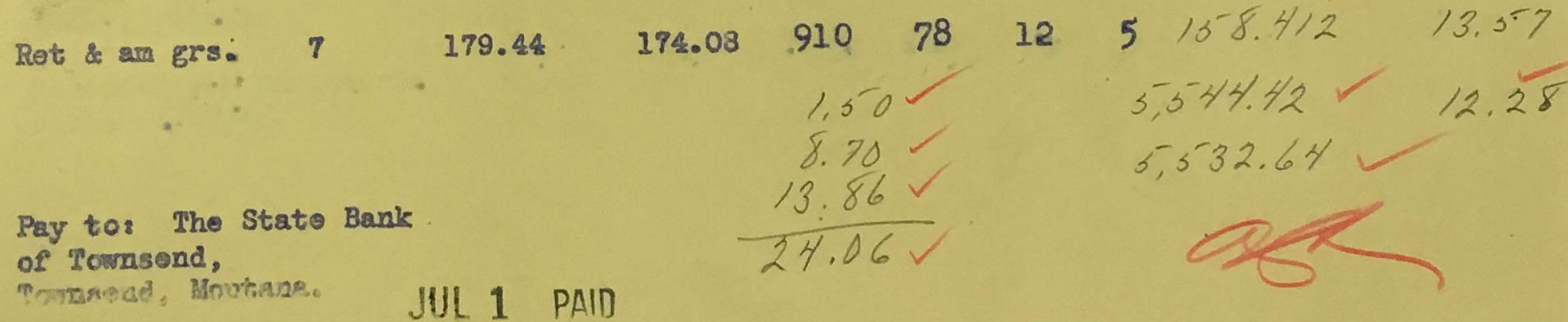 Ret & am grs. 7 179.44 174.08 910 78 12 5 158.412 13.57
1.50 5,544.42 12.28
8.70 5,532.64
13.86
Pay to: The State Bank
24.06
of Townsend,
Townsend, Montana.
JUL 1 PAID